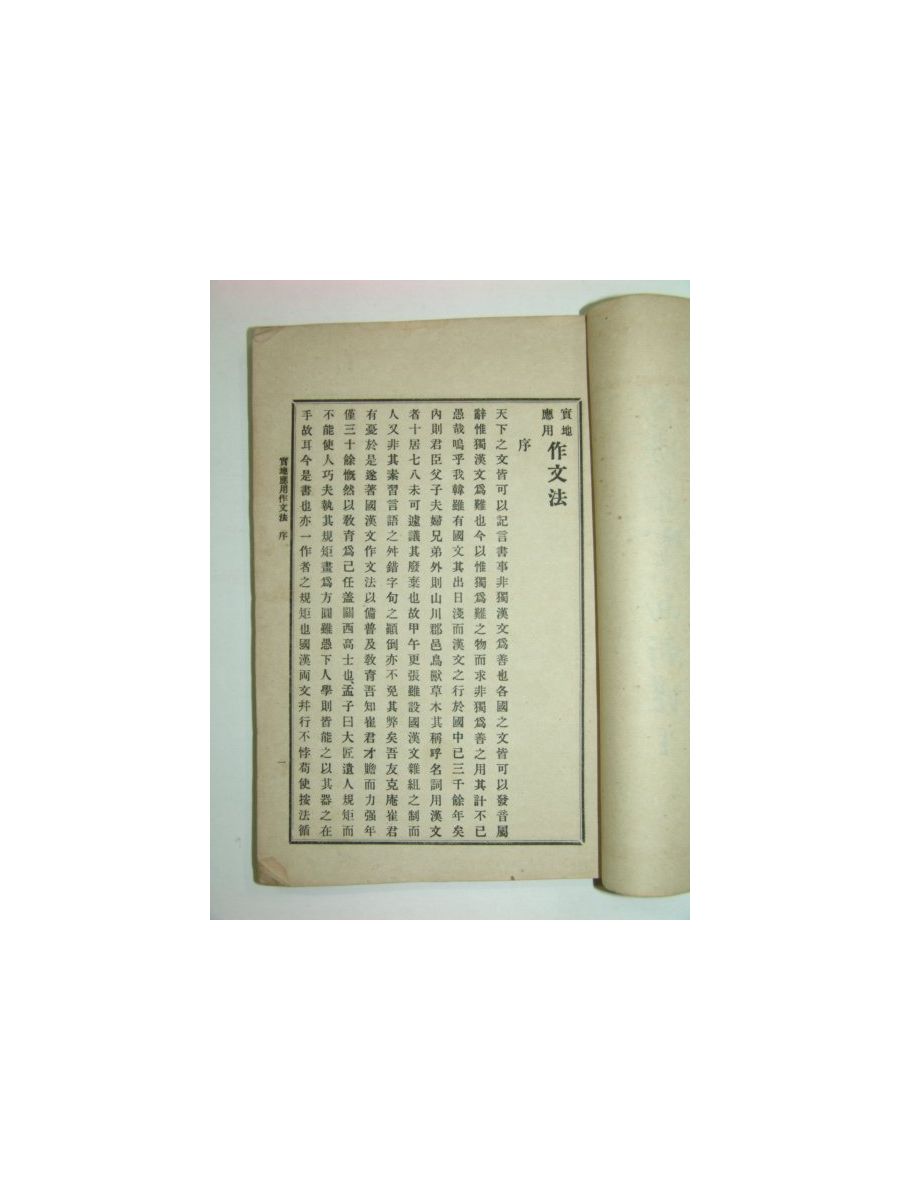 實地應用 作文法
序
天下之文皆可以記言書事非獨漢文爲善也各國之文皆可以發音屬
辭惟獨漢文爲難也今以惟獨爲難之物而求非獨爲善之用其計不已
愚哉嗚乎我韓雖有國文其出日淺而漢文之行於國中已三千餘年矣
內則君臣父子夫婦兄弟外則山川郡邑鳥獸草木其稱呼名詞用漢文
者十居七八未可遽議其廢棄也故甲午更張雖設國漢文雜組之制而
人又非其素習言語之舛錯字句之顚倒亦不免其弊矣吾友克庵崔君
有憂於是遂著國漢文作文法以備普及敎育吾知崔君才贍而力强年
僅三十餘慨然以敎育爲己任盖關西高士也孟子曰大匠遺人規矩而
不能使人巧夫執其規矩畫爲方圓雖愚下人學則皆能之以其器之在
手故耳今是書也亦一作者之規矩也國漢両文幷行不悖苟使按法循
實地應用作文法 序
一